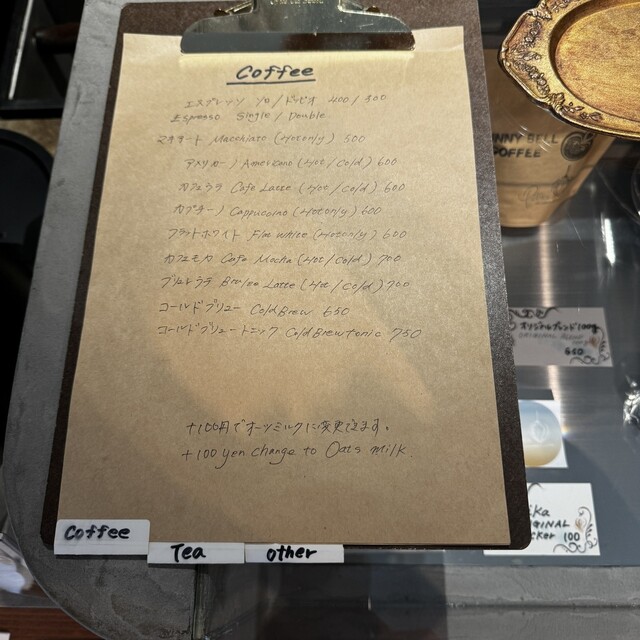 Coffee
エスプレッソ ソロ/ドッピオ 400/500
Espresso Single/Double
マキアート Macchiato (Hot only) 500
アメリカーノ Americano (Hot/Cold) 600
カフェラテ Cafe Latte (Hot/Cold) 600
カプチーノ Cappuccino (Hot only) 600
フラットホワイト Flat White (Hot only) 600
カフェモカ Cafe Mocha (Hot/Cold) 700
ブレベラテ Brelee Latte (Hot/Cold) 700
コールドブリュー Cold Brew 650
コールドブリュートニック Cold Brew tonic 750
+100円でオーツミルクに変更できます。
+100 yen change to Oats milk.
Coffee
Tea
other
NNY BELL
COFFEE
オリジナルブレンド100g
650
ika
IGINAL
cker 100